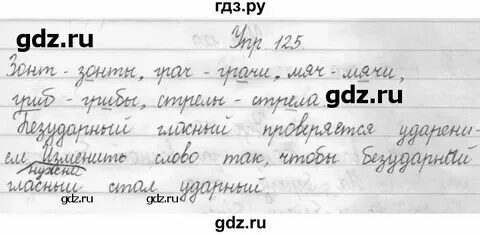 гдз.ру
gdz.ru
gdz.ru
Упр 125.
Зонт - зонты, грач - грачи, мяч - мячи,
гриб - грибы, стрелы - стрела.
gdz.ru
gdz.ru
Безударный гласный проверяется ударени-
ем. Изменить слово так, чтобы безударный
нужно
гласный стал ударный.
gdz.ru
gdz.ru